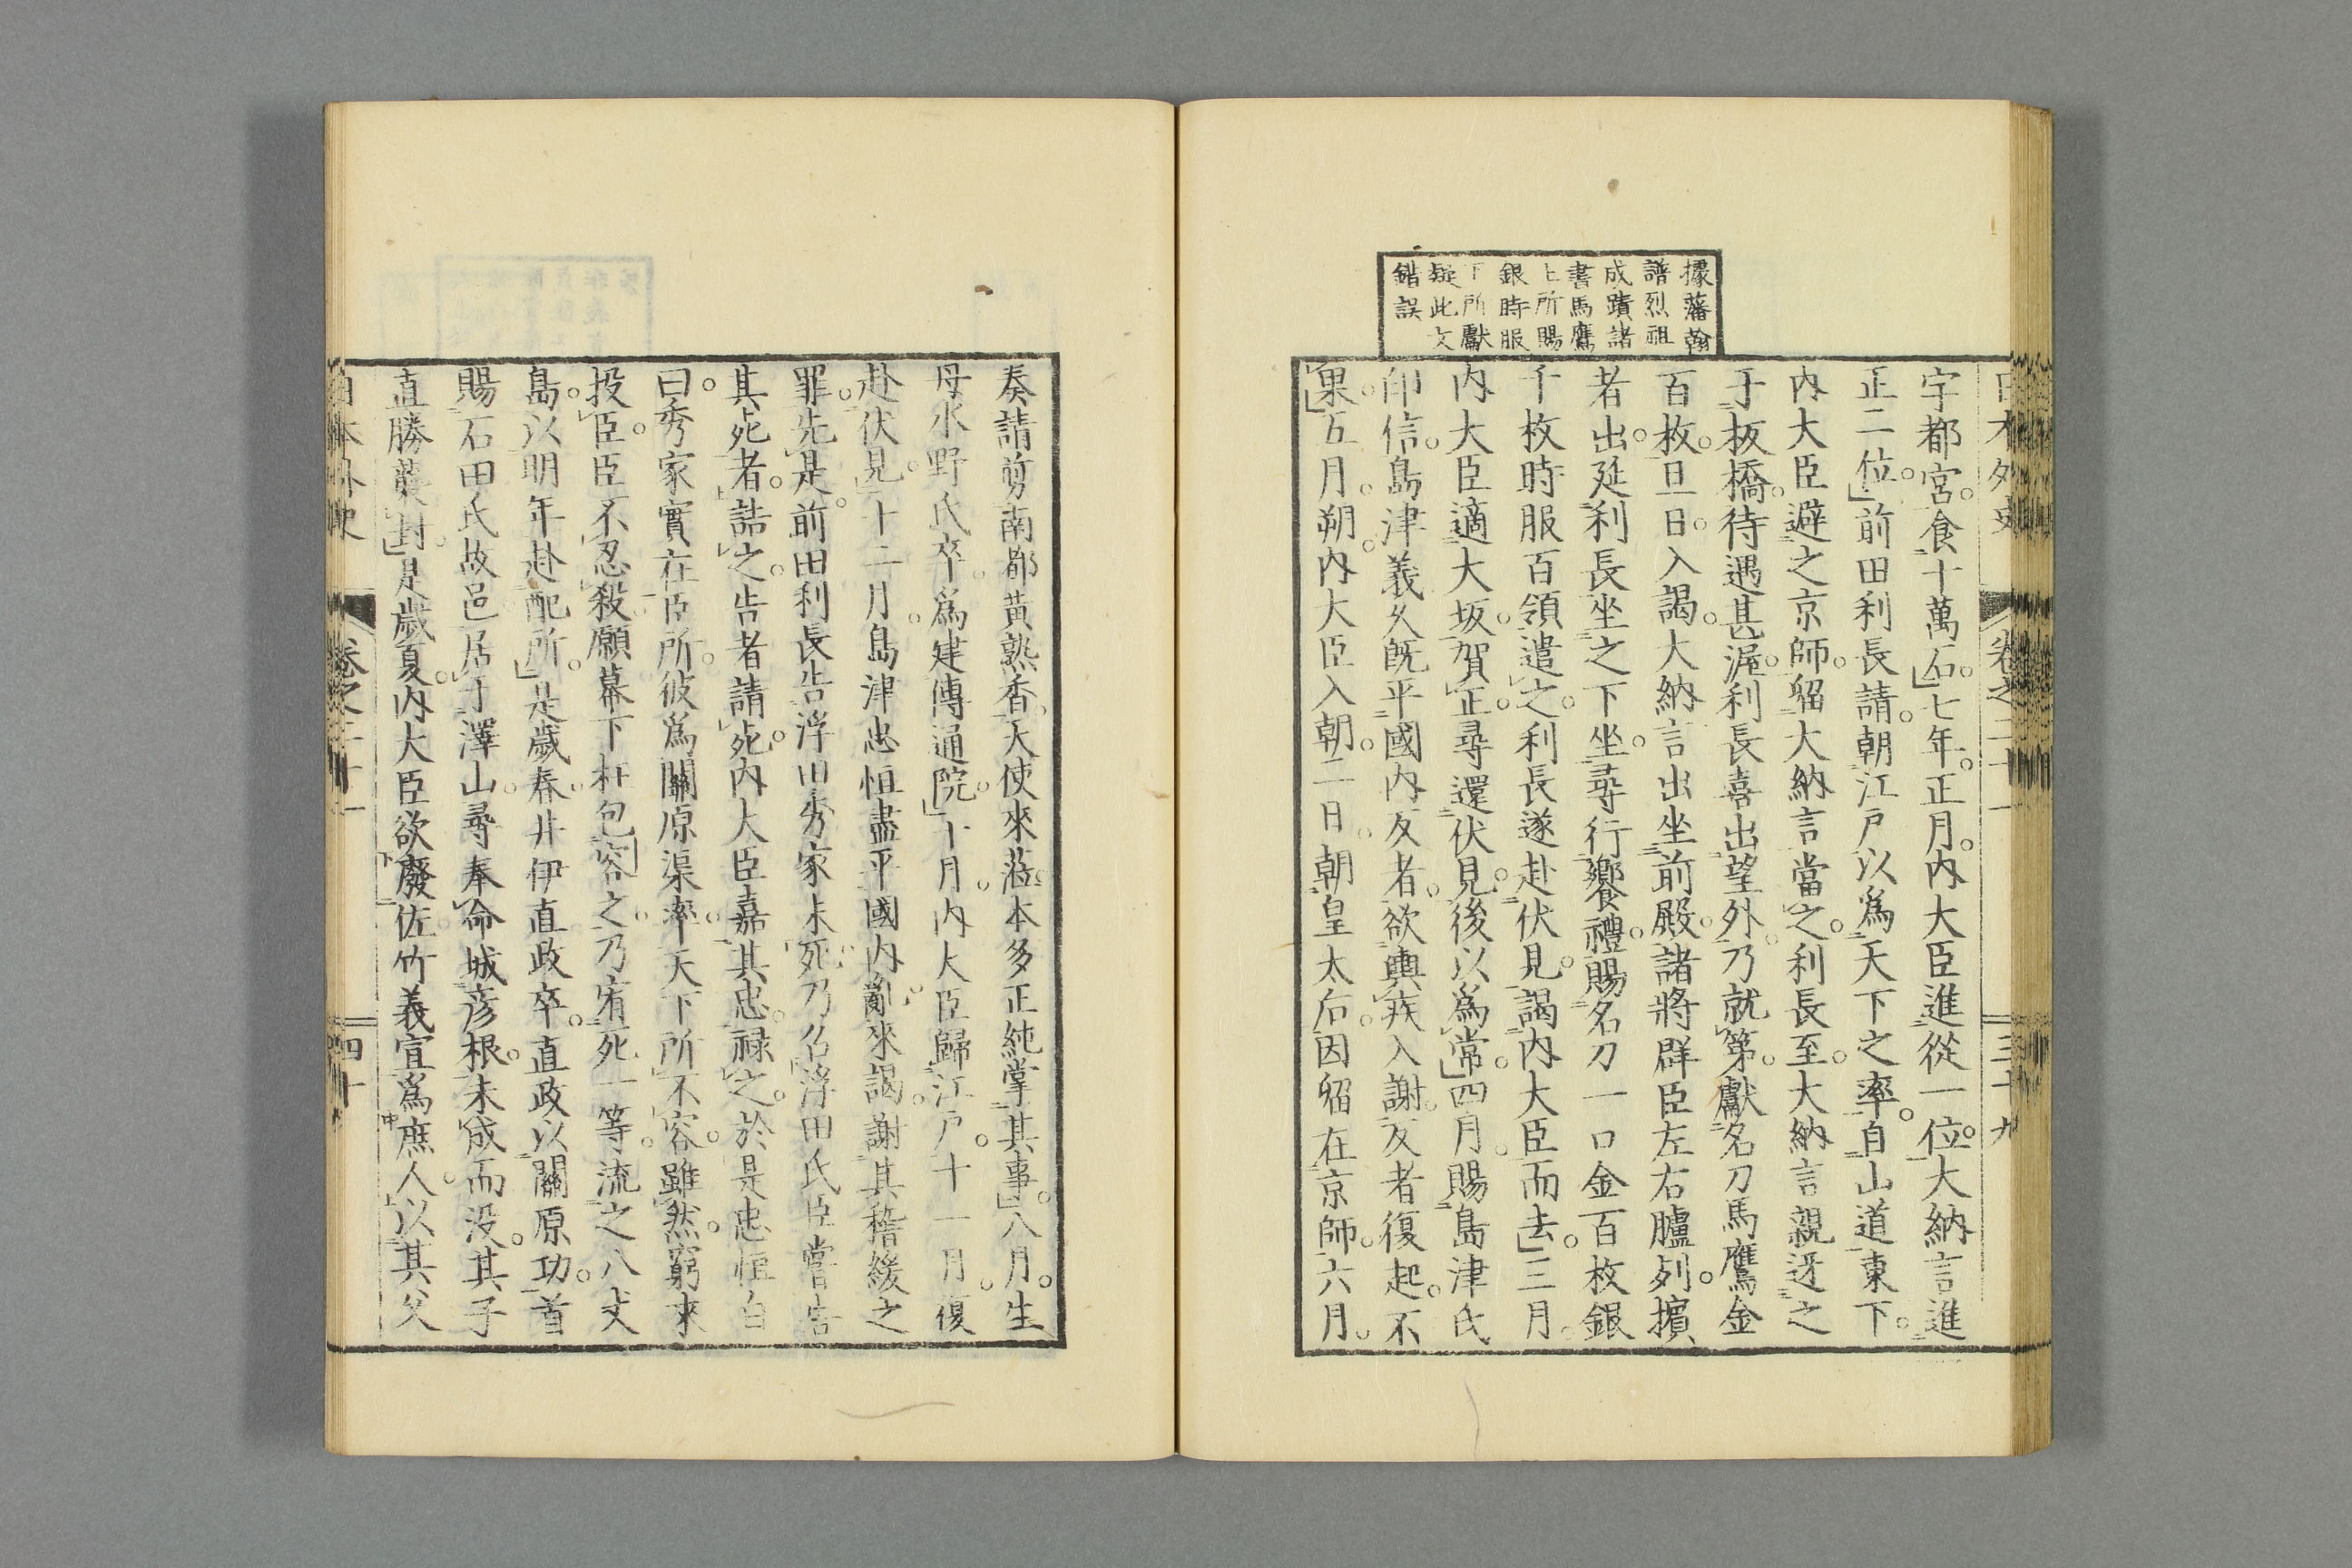 日本外史 卷之二十一 三十九
宇都宮。食十萬石。」七年。正月。內大臣進從一位。大納言進
正二位。」前田利長請。朝江戶以爲天下之率。自山道東下。
內大臣避之京師。留大納言當之。利長至。大納言親迓之
于板橋。待遇甚渥。利長喜出望外。乃就第。獻名刀馬鷹金
百枚。旦日。入謁。大納言出坐前殿。諸將群臣左右臚列。擯
者出。延利長坐之下坐。尋行饗禮。賜名刀一口金百枚銀
千枚時服百領遣之。利長遂赴伏見。謁內大臣而去。」三月。
內大臣適大坂。賀正。尋還伏見。後以爲常。」四月。賜島津氏
印信。島津義久旣平國內反者。欲輿疾入謝。反者復起。不
果。」五月。朔。內大臣入朝。二日。朝皇太后。因留在京師。六月。
據藩翰
譜烈祖
成蹟諸
書馬鷹
上所賜
銀時服
下所獻
疑此文
錯誤
奏請剪南都黃熟香。天使來涖。本多正純掌其事。」八月。生
母水野氏卒。爲建傳通院。」十月。內大臣歸江戶。十一月。復
赴伏見。」十二月。島津忠恒盡平國內亂。來謁。謝其稽緩之
罪。先是。前田利長告浮田秀家未死。乃名浮田氏臣嘗告
其死者。詰之。告者請死。內大臣嘉其忠。祿之。於是忠恒白
曰。秀家實在臣所。彼爲關原渠率。天下所不容。雖然。窮來
投臣。臣不忍殺。願幕下枉包容之。乃宥死一等。流之八丈
島。以明年赴配所。」是歲春。井伊直政卒。直政以關原功。首
賜石田氏故邑。居于澤山。尋奉命城彥根。未成而沒。其子
直勝襲封。」是歲夏。內大臣欲廢佐竹義宣爲庶人。以其父
日本外史 卷之二十一 四十